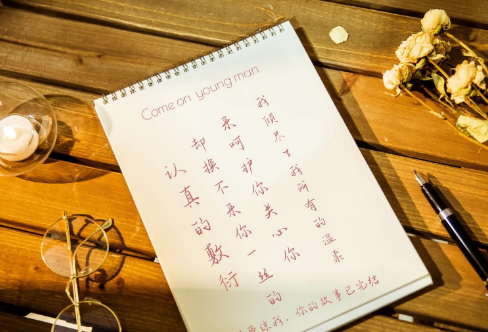 Come on young man
我倾尽了我所有的温柔
来呵护你关心你
却换不来你一丝的
认真的敷衍
我，你的故事已完结